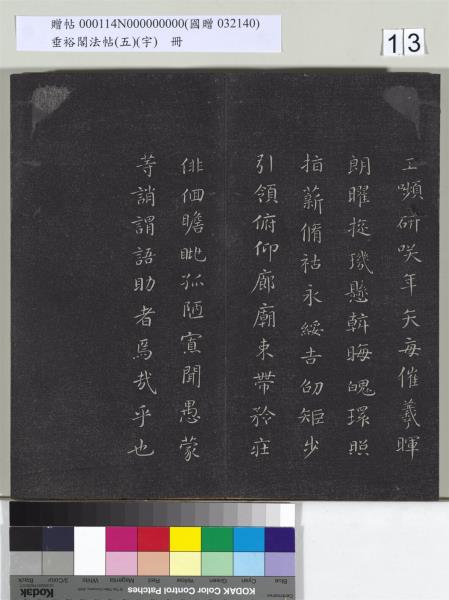 贈帖 000114N000000000(國贈 032140)
垂裕閣法帖(五)(宇) 冊
13
工嚬研咲年矢每催羲暉
朗曜旋璣懸斡晦魄環照
指薪脩祜永綏吉劭矩步
引領俯仰廊廟束帶矜莊
俳佪瞻眺孤陋寡聞愚蒙
等誚謂語助者焉哉乎也
Kodak
KODAK Color Control Patches
Blue
Cyan
Green
Yellow
Red
Magenta
White
3/Color
Black